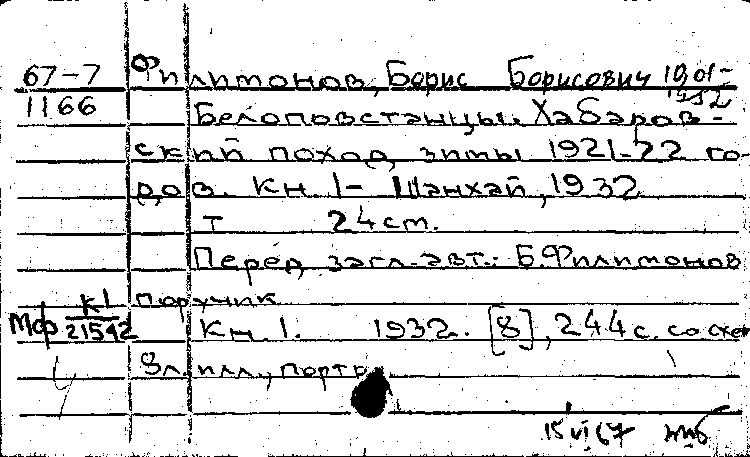 67-7 Филимонов, Борис Борисович 1901-
1166 1952
Белоповстанцы. Хабаров-
ский поход зимы 1921-22 го-
дов. Кн. 1- Шанхай, 1932
т 24 ст.
Перед загл. авт.: Б. Филимонов
К1 поручик
Мф 21542 Кн. 1. 1932. [8], 244 с. со схем
8 л. илл., портр.
15 VI 67